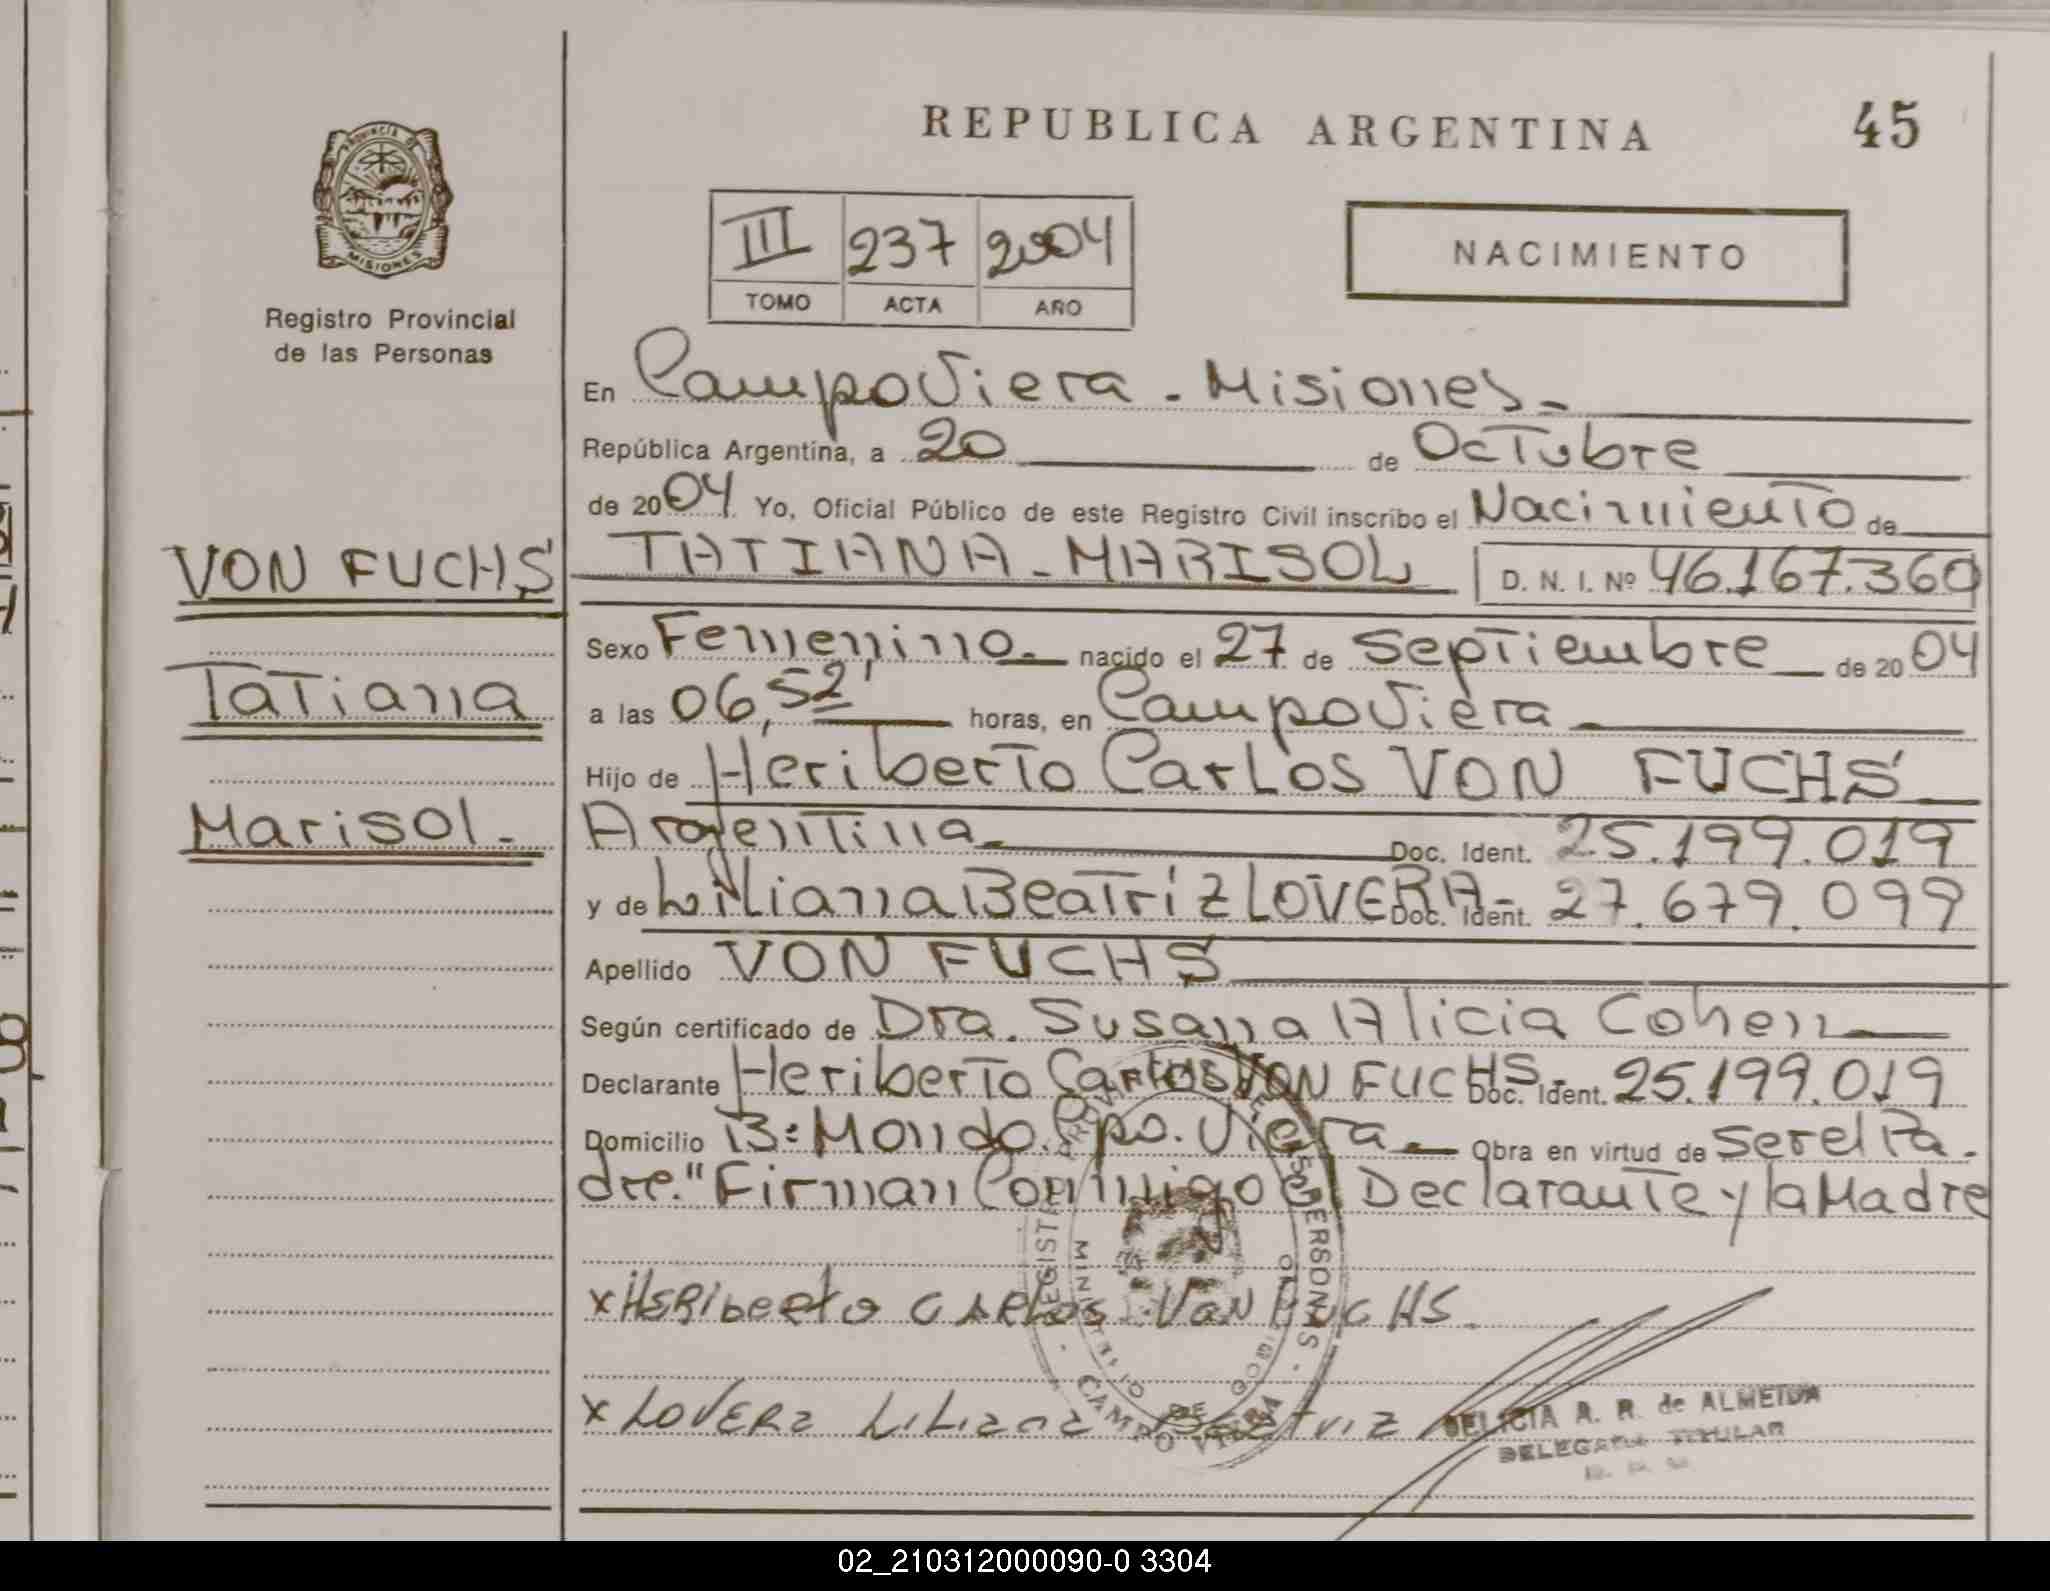 REPUBLICA ARGENTINA
45
PROVINCIA DE
MISIONES
Registro Provincial
de las Personas
III 237 2004
TOMO ACTA AÑO
NACIMIENTO
En Campo Viera - Misiones -
República Argentina, a 20 de OcTubre
de 2004 Yo, Oficial Público de este Registro Civil inscribo el NacimienTo de
VON FUCHS
TATIANA - MARISOL D. N. I. Nº 46.167.360
Sexo Femenino. nacido el 27 de SepTiembre de 2004
TaTiana
a las 06,52' horas, en Campo Viera -
Hijo de HeriberTo CarLos VON FUCHS
Marisol.-
ArgenTina Doc. Ident. 25.199.019
y de LiLiana BeaTriz LOVERA - Doc. Ident. 27.679.099
Apellido VON FUCHS
Según certificado de Dra. Susana Alicia Cohen
Declarante HeriberTo Carlos VON FUCHS - Doc. Ident. 25.199.019
Domicilio B: Mondo. Cpo. Viera - Obra en virtud de ser el Pa-
dre." Firman Conmigo el DeclaranTe y la Madre
x HERIberto CARlos VoN FUCHS.
x LOVERa LiLiana Beatriz
CAMPO VIERA
DELICIA A. R. de ALMEIDA
DELEGADA TITULAR
02_210312000090-0 3304